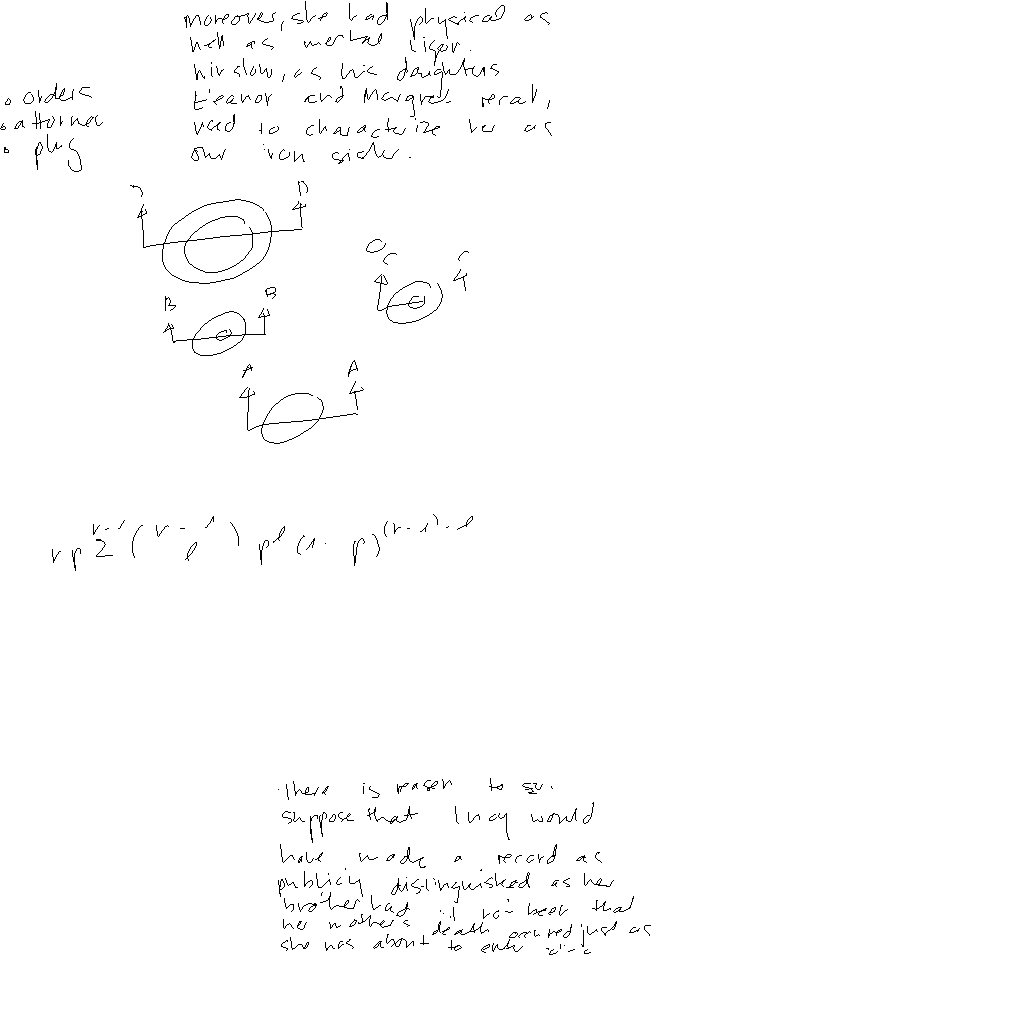 moreover, she had physical as
well as mental vigor.
Winslow, as his daughters
Eleanor and Margret recall,
used to characterize her as
our iron sister.
• orders
• attorney
• plug
D D
C C
B B
A A
r p Σ^{r-1} (r-1 l) p^l (1-p)^{(r-1)-l}
There is reason to su-
suppose that Lucy would
have made a record as
publicly distinguished as her
brother had it not been that
her mother's death occured just as
she was about to enter